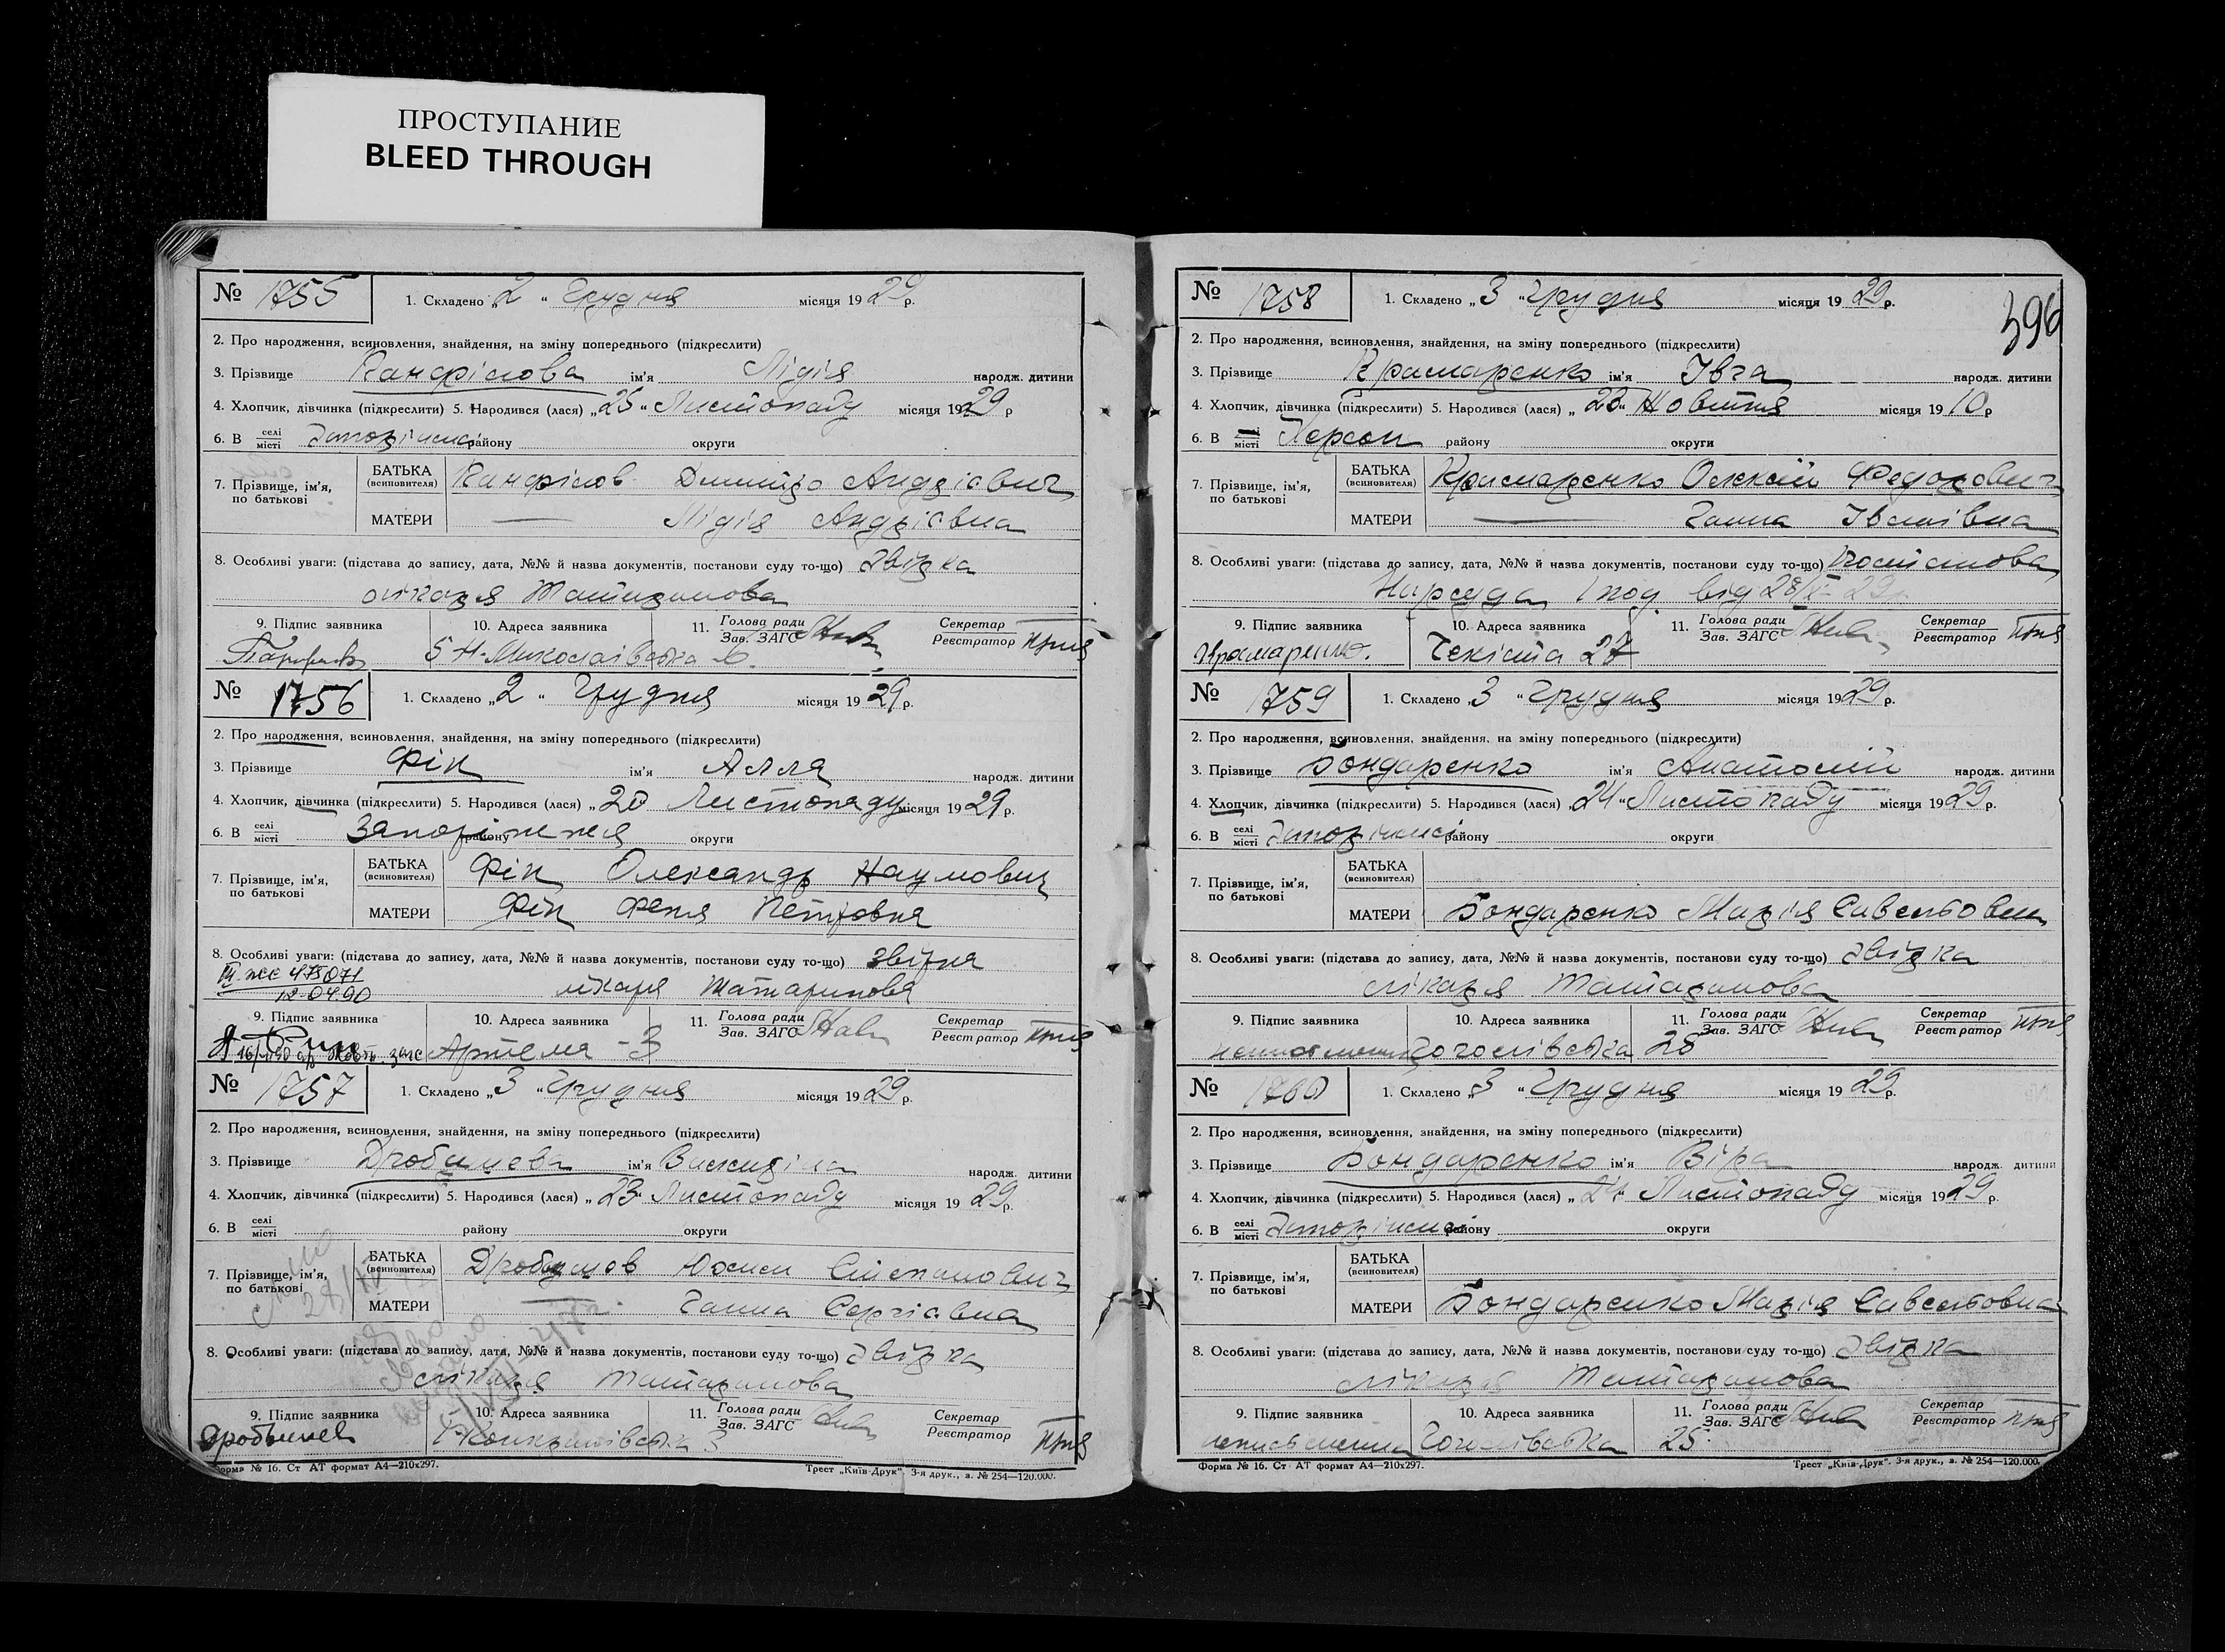 ПРОСТУПАНИЕ
BLEED THROUGH
№ 1755 1. Складено „2“ Грудня місяця 1929р.
2. Про народження, всиновлення, знайдення, на зміну попереднього (підкреслити)
3. Прізвище Канфілова ім'я Лідія народж. дитини
4. Хлопчик, дівчинка (підкреслити) 5. Народився (лася) „25“ Листопаду місяця 1929 р
6. В селі місті Запоріжжі району округи
7. Прізвище, ім'я, по батькові БАТЬКА (всиновителя) Канфілов Дмитро Андрієвич
МАТЕРИ — Лідія Андрієвна
8. Особливі уваги: (підстава до запису, дата, №№ й назва документів, постанови суду то-що) Звідка
лікаря Татаринова
9. Підпис заявника 10. Адреса заявника 11. Голова ради Зав. ЗАГС Секретар Реєстратор
Миколаївська 6.
№ 1756 1. Складено „2“ Грудня місяця 1929р.
2. Про народження, всиновлення, знайдення, на зміну попереднього (підкреслити)
3. Прізвище Фік ім'я Алля народж. дитини
4. Хлопчик, дівчинка (підкреслити) 5. Народився (лася) „20 Листопаду місяця 1929р.
6. В селі місті Запоріжжя району округи
7. Прізвище, ім'я, по батькові БАТЬКА (всиновителя) Фік Олександр Наумович
МАТЕРИ Фік Феня Петровня
8. Особливі уваги: (підстава до запису, дата, №№ й назва документів, постанови суду то-що) звідка
475071
12-04.90 лікаря Татаринова
9. Підпис заявника 10. Адреса заявника 11. Голова ради Зав. ЗАГС Секретар Реєстратор
Артема - 3
№ 1757 1. Складено „3“ Грудня місяця 1929р.
2. Про народження, всиновлення, знайдення, на зміну попереднього (підкреслити)
3. Прізвище ім'я народж. дитини
4. Хлопчик, дівчинка (підкреслити) 5. Народився (лася) „23“ Листопаду місяця 1929р.
6. В селі місті району округи
7. Прізвище, ім'я, по батькові БАТЬКА (всиновителя) Степанович
МАТЕРИ — Ганна Сергієвна
8. Особливі уваги: (підстава до запису, дата, №№ й назва документів, постанови суду то-що) Звідка
лікаря Татаринова
9. Підпис заявника 10. Адреса заявника 11. Голова ради Зав. ЗАГС Секретар Реєстратор
Форма № 16. Ст АТ формат А4—210х297. Трест „Київ-Друк“. 3-я друк., з. № 254—120.000.
396
№ 1758 1. Складено „3“ Грудня місяця 1929р.
2. Про народження, всиновлення, знайдення, на зміну попереднього (підкреслити)
3. Прізвище Крамаренко ім'я Івга народж. дитини
4. Хлопчик, дівчинка (підкреслити) 5. Народився (лася) „23“ Новитня місяця 1910р
6. В селі місті Херсон району округи
7. Прізвище, ім'я, по батькові БАТЬКА (всиновителя) Крамаренко Олексій Федорович
МАТЕРИ — Ганна Іванівна
8. Особливі уваги: (підстава до запису, дата, №№ й назва документів, постанови суду то-що) Постанова
Нарсуда від
9. Підпис заявника 10. Адреса заявника 11. Голова ради Зав. ЗАГС Секретар Реєстратор
Крамаренко. Чекіста 27
№ 1759 1. Складено „3“ Грудня місяця 1929р.
2. Про народження, всиновлення, знайдення, на зміну попереднього (підкреслити)
3. Прізвище Бондаренко ім'я Анатолій народж. дитини
4. Хлопчик, дівчинка (підкреслити) 5. Народився (лася) „24“ Листопаду місяця 1929р.
6. В селі місті Запоріжжі району округи
7. Прізвище, ім'я, по батькові БАТЬКА (всиновителя)
МАТЕРИ Бондаренко Марія Савельовна
8. Особливі уваги: (підстава до запису, дата, №№ й назва документів, постанови суду то-що) Звідка
лікаря Татаринова
9. Підпис заявника 10. Адреса заявника 11. Голова ради Зав. ЗАГС Секретар Реєстратор
Гоголівська 25
№ 1760 1. Складено „3“ Грудня місяця 1929р.
2. Про народження, всиновлення, знайдення, на зміну попереднього (підкреслити)
3. Прізвище Бондаренко ім'я Віра народж. дитини
4. Хлопчик, дівчинка (підкреслити) 5. Народився (лася) „24“ Листопаду місяця 1929р.
6. В селі місті Запоріжжі району округи
7. Прізвище, ім'я, по батькові БАТЬКА (всиновителя)
МАТЕРИ Бондаренко Марія Савельовна
8. Особливі уваги: (підстава до запису, дата, №№ й назва документів, постанови суду то-що) Звідка
лікаря Татаринова
9. Підпис заявника 10. Адреса заявника 11. Голова ради Зав. ЗАГС Секретар Реєстратор
Гоголівська 25
Форма № 16. Ст АТ формат А4—210х297. Трест „Київ-Друк“. 3-я друк., з. № 254—120.000.